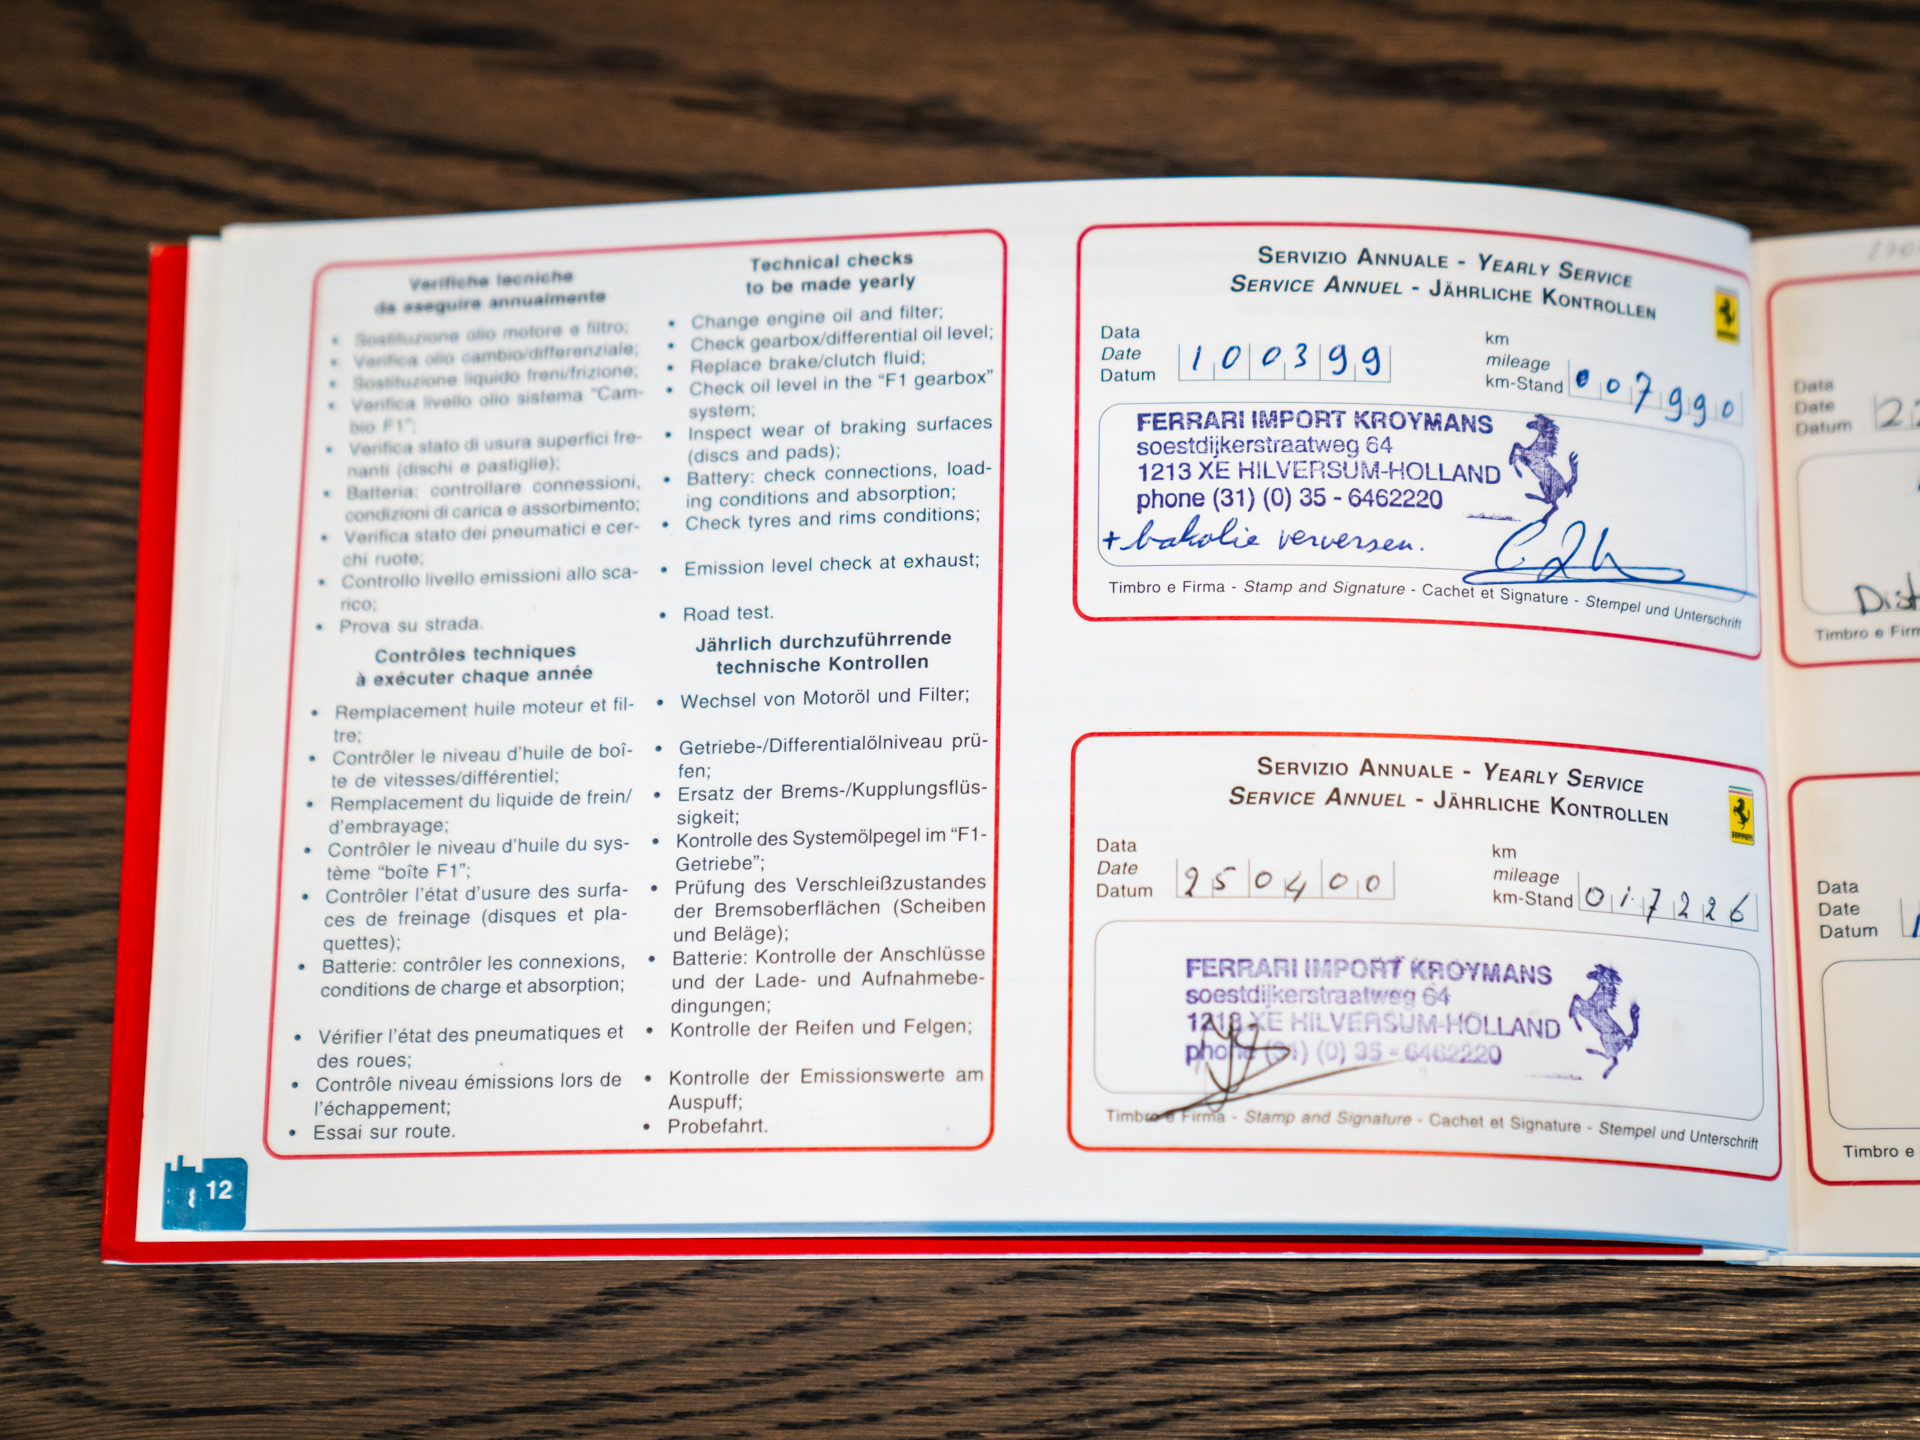 Verifiche tecniche
da eseguire annualmente
• Sostituzione olio motore e filtro;
• Verifica olio cambio/differenziale;
• Sostituzione liquido freni/frizione;
• Verifica livello olio sistema “Cam-
bio F1”;
• Verifica stato di usura superfici fre-
nanti (dischi e pastiglie);
• Batteria: controllare connessioni,
condizioni di carica e assorbimento;
• Verifica stato dei pneumatici e cer-
chi ruote;
• Controllo livello emissioni allo sca-
rico;
• Prova su strada.
Contrôles techniques
à exécuter chaque année
• Remplacement huile moteur et fil-
tre;
• Contrôler le niveau d'huile de boî-
te de vitesses/différentiel;
• Remplacement du liquide de frein/
d'embrayage;
• Contrôler le niveau d'huile du sys-
tème “boîte F1”;
• Contrôler l'état d'usure des surfa-
ces de freinage (disques et pla-
quettes);
• Batterie: contrôler les connexions,
conditions de charge et absorption;
• Vérifier l'état des pneumatiques et
des roues;
• Contrôle niveau émissions lors de
l'échappement;
• Essai sur route.
12
Technical checks
to be made yearly
• Change engine oil and filter;
• Check gearbox/differential oil level;
• Replace brake/clutch fluid;
• Check oil level in the “F1 gearbox”
system;
• Inspect wear of braking surfaces
(discs and pads);
• Battery: check connections, load-
ing conditions and absorption;
• Check tyres and rims conditions;
• Emission level check at exhaust;
• Road test.
Jährlich durchzuführrende
technische Kontrollen
• Wechsel von Motoröl und Filter;
• Getriebe-/Differentialölniveau prü-
fen;
• Ersatz der Brems-/Kupplungsflüs-
sigkeit;
• Kontrolle des Systemölpegel im “F1-
Getriebe”;
• Prüfung des Verschleißzustandes
der Bremsoberflächen (Scheiben
und Beläge);
• Batterie: Kontrolle der Anschlüsse
und der Lade- und Aufnahmebe-
dingungen;
• Kontrolle der Reifen und Felgen;
• Kontrolle der Emissionswerte am
Auspuff;
• Probefahrt.
SERVIZIO ANNUALE - YEARLY SERVICE
SERVICE ANNUEL - JÄHRLICHE KONTROLLEN
Data
Date
Datum
100399
km
mileage
km-Stand
007990
FERRARI IMPORT KROYMANS
soestdijkerstraatweg 64
1213 XE HILVERSUM-HOLLAND
phone (31) (0) 35 - 6462220
+ bakolie verversen.
Timbro e Firma - Stamp and Signature - Cachet et Signature - Stempel und Unterschrift
SERVIZIO ANNUALE - YEARLY SERVICE
SERVICE ANNUEL - JÄHRLICHE KONTROLLEN
Data
Date
Datum
250400
km
mileage
km-Stand
017226
FERRARI IMPORT KROYMANS
soestdijkerstraatweg 64
1213 XE HILVERSUM-HOLLAND
phone (31) (0) 35 - 6462220
Timbro e Firma - Stamp and Signature - Cachet et Signature - Stempel und Unterschrift
Data
Date
Datum
Dist
Timbro e Firm
Data
Date
Datum
Timbro e